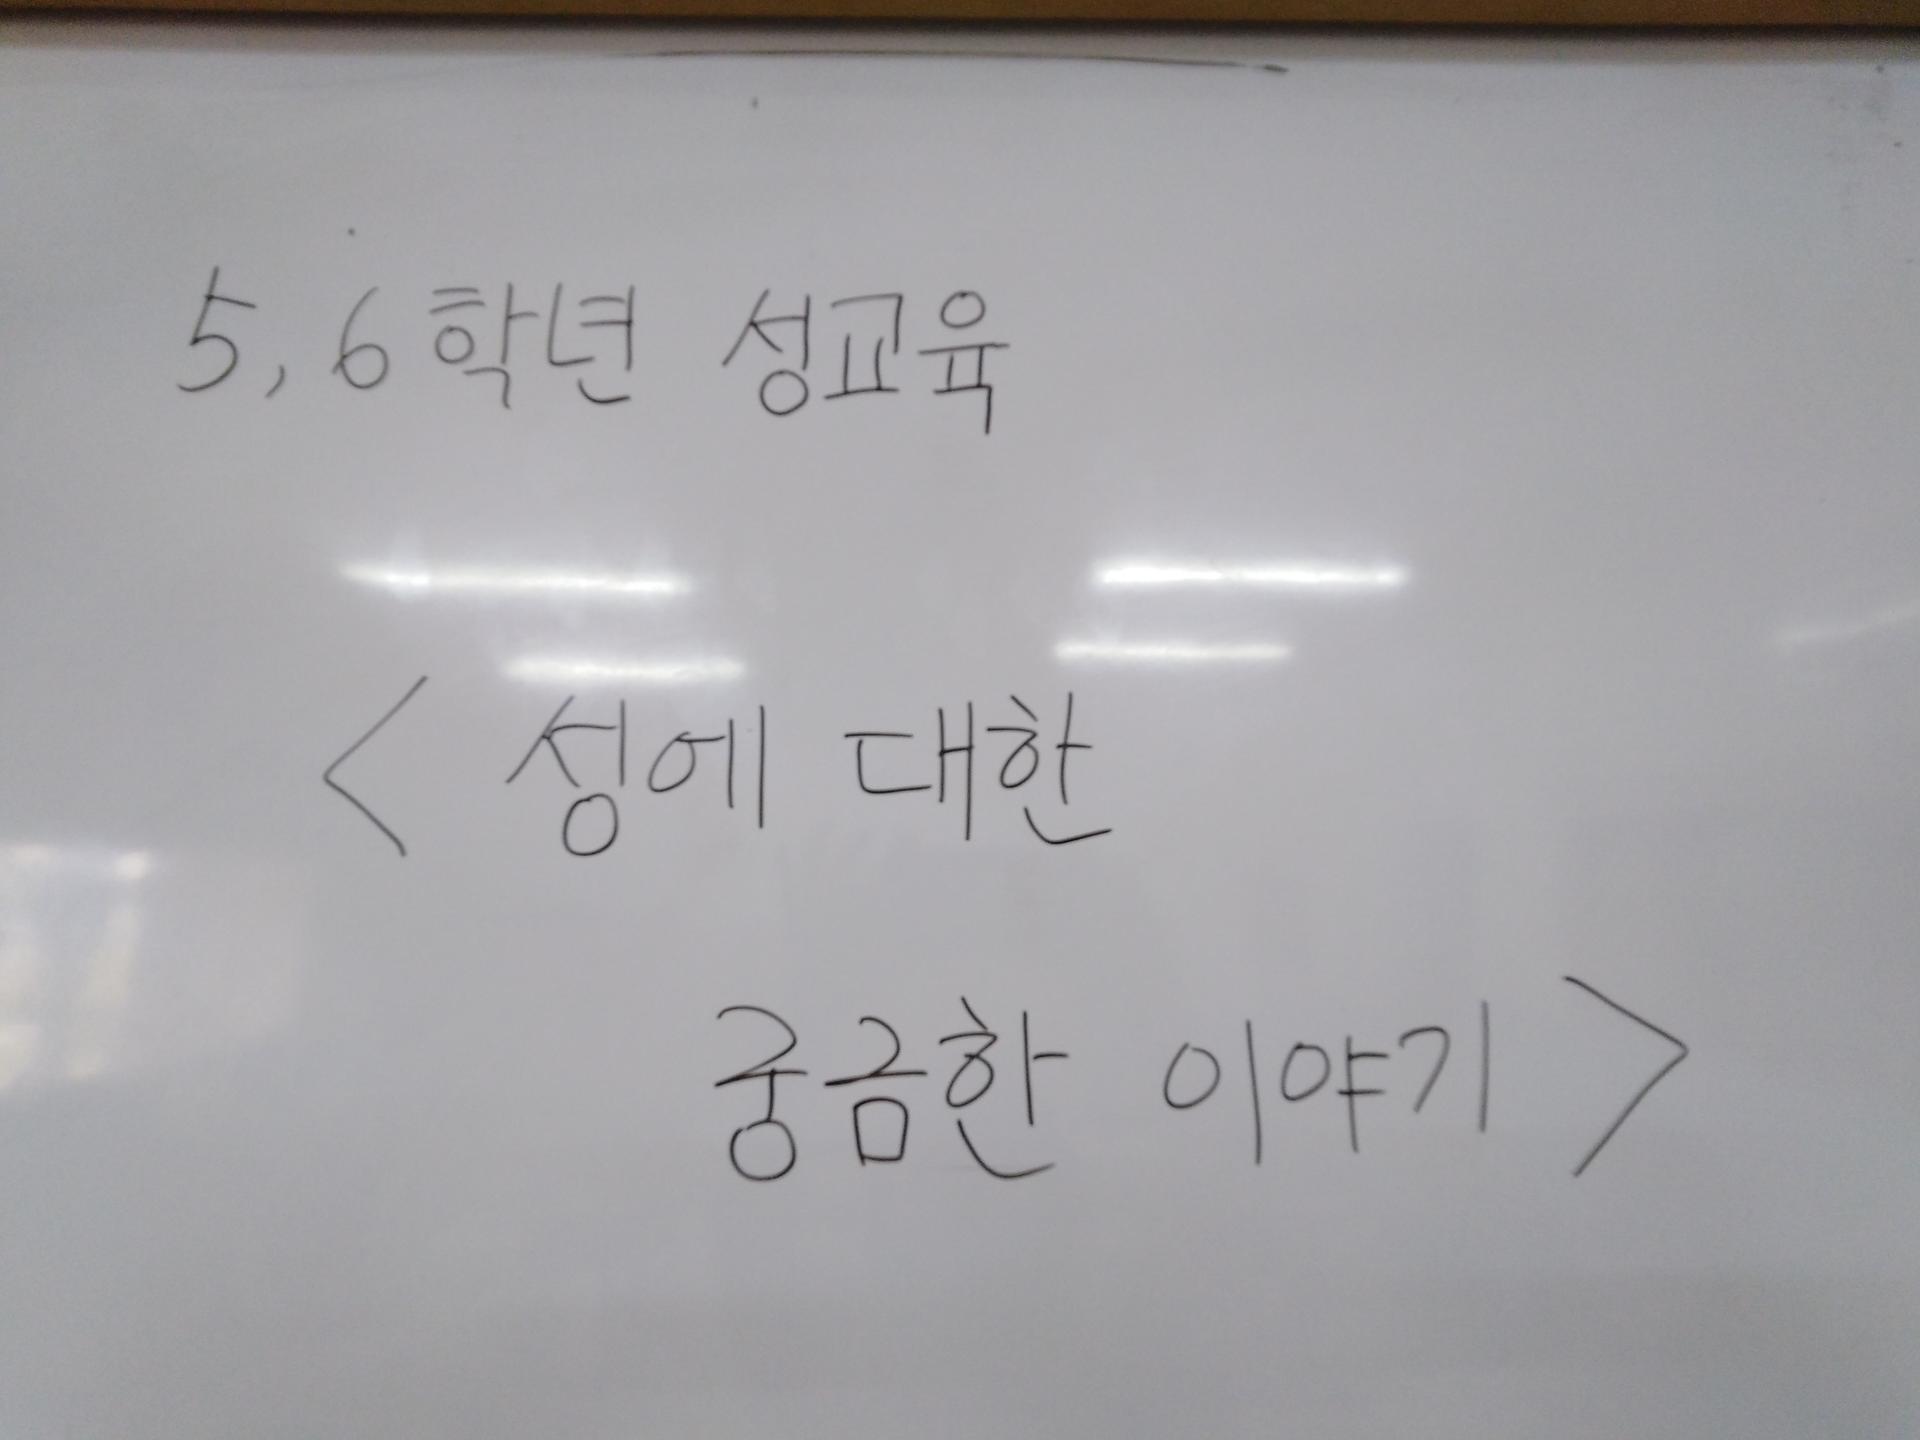 5, 6학년 성교육
< 성에 대한
궁금한 이야기 >